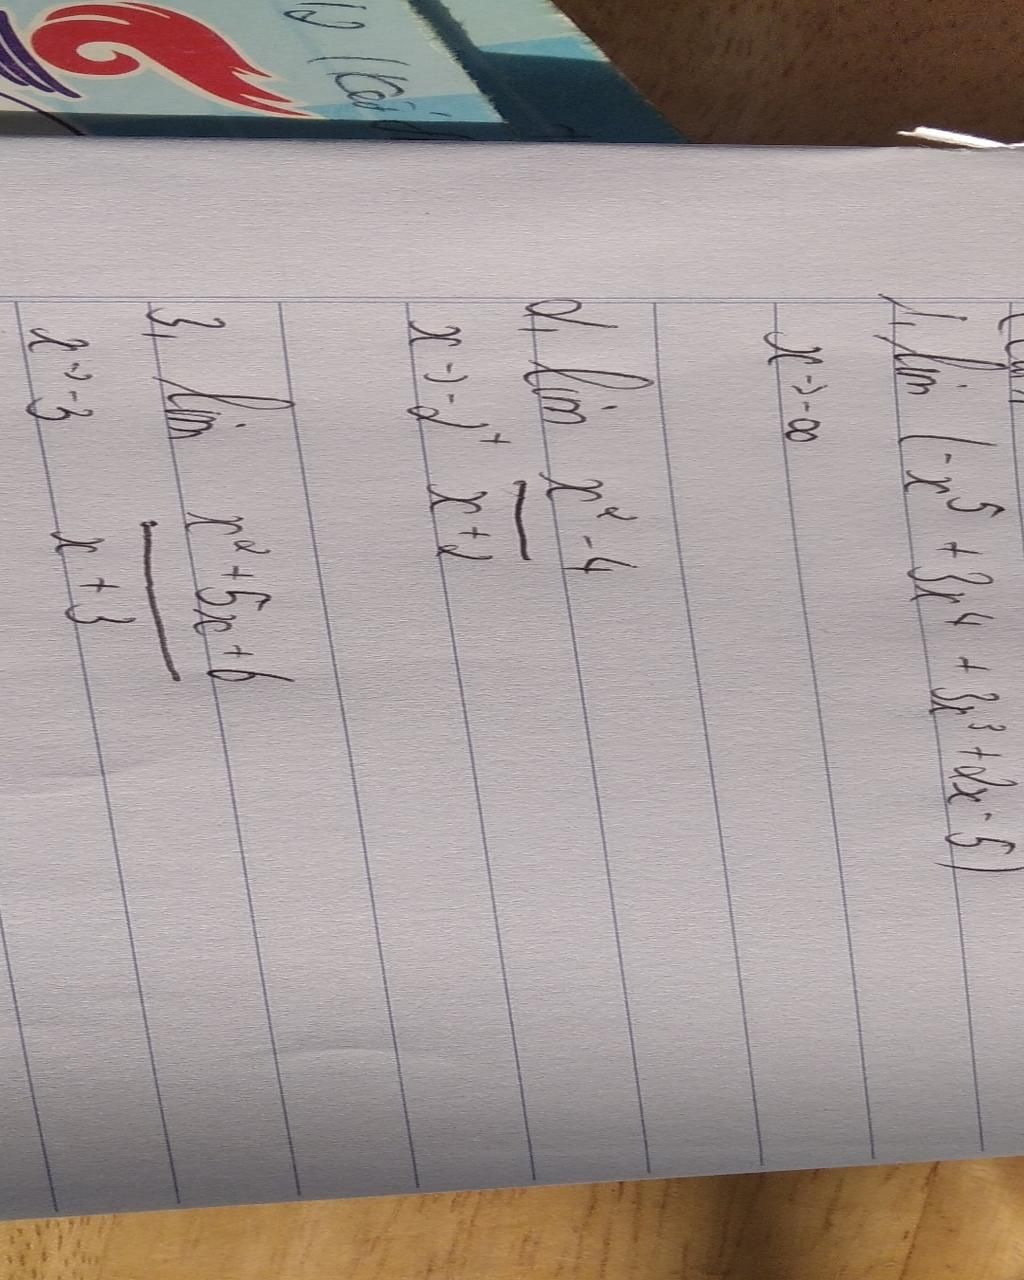 1, lim (-x⁵ + 3x⁴ + 3x³ + 2x - 5)
x→-∞
2, lim x² - 4
x→-2⁺ x + 2
3, lim x² + 5x + 6
x→-3 x + 3